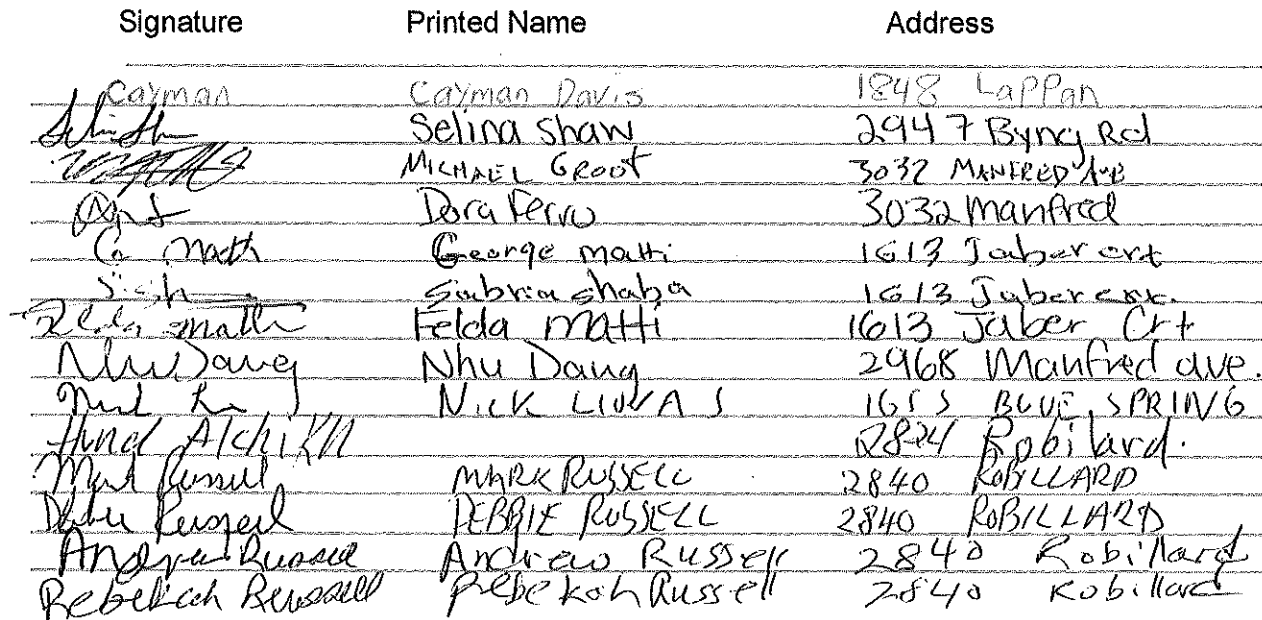 Signature Printed Name Address
Cayman Cayman Davis 1848 Lappan
Selina Shaw 2947 Byng Rd
MICHAEL GROOT 3032 MANFRED AVE
Dora Ferro 3032 Manfred
G. Matti George Matti 1613 Jaber crt
Sabria shaba 1613 Jaber crt.
Felda Matti Felda Matti 1613 Jaber Crt
Nhu Dang Nhu Dang 2968 Manfred ave.
NICK 1655 BLUE SPRING
Hind Alchikh 2824 Robilard.
Mark Russell MARK RUSSELL 2840 ROBILLARD
Debbie Russell DEBBIE RUSSELL 2840 ROBILLARD
Andrew Russell Andrew Russell 2840 Robillard
Rebekah Russell Rebekah Russell 2840 Robillard